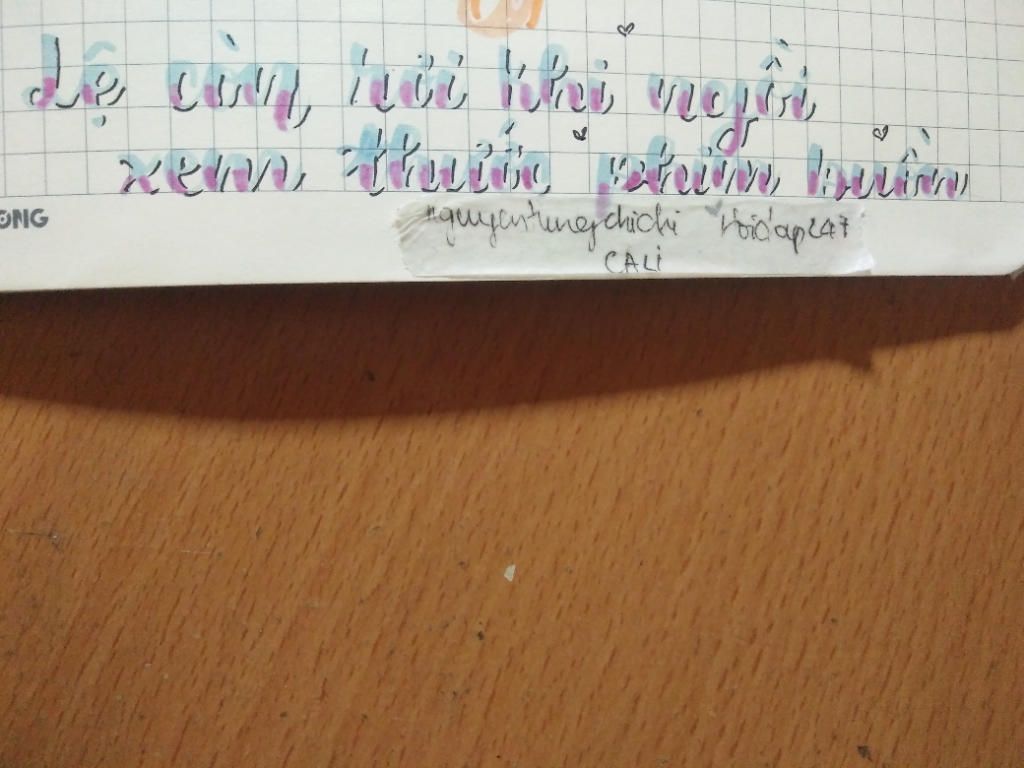 Lệ còn rơi khi ngồi
xem thước phim buồn
ONG
nguyentungchichi Hoidap247
CALI